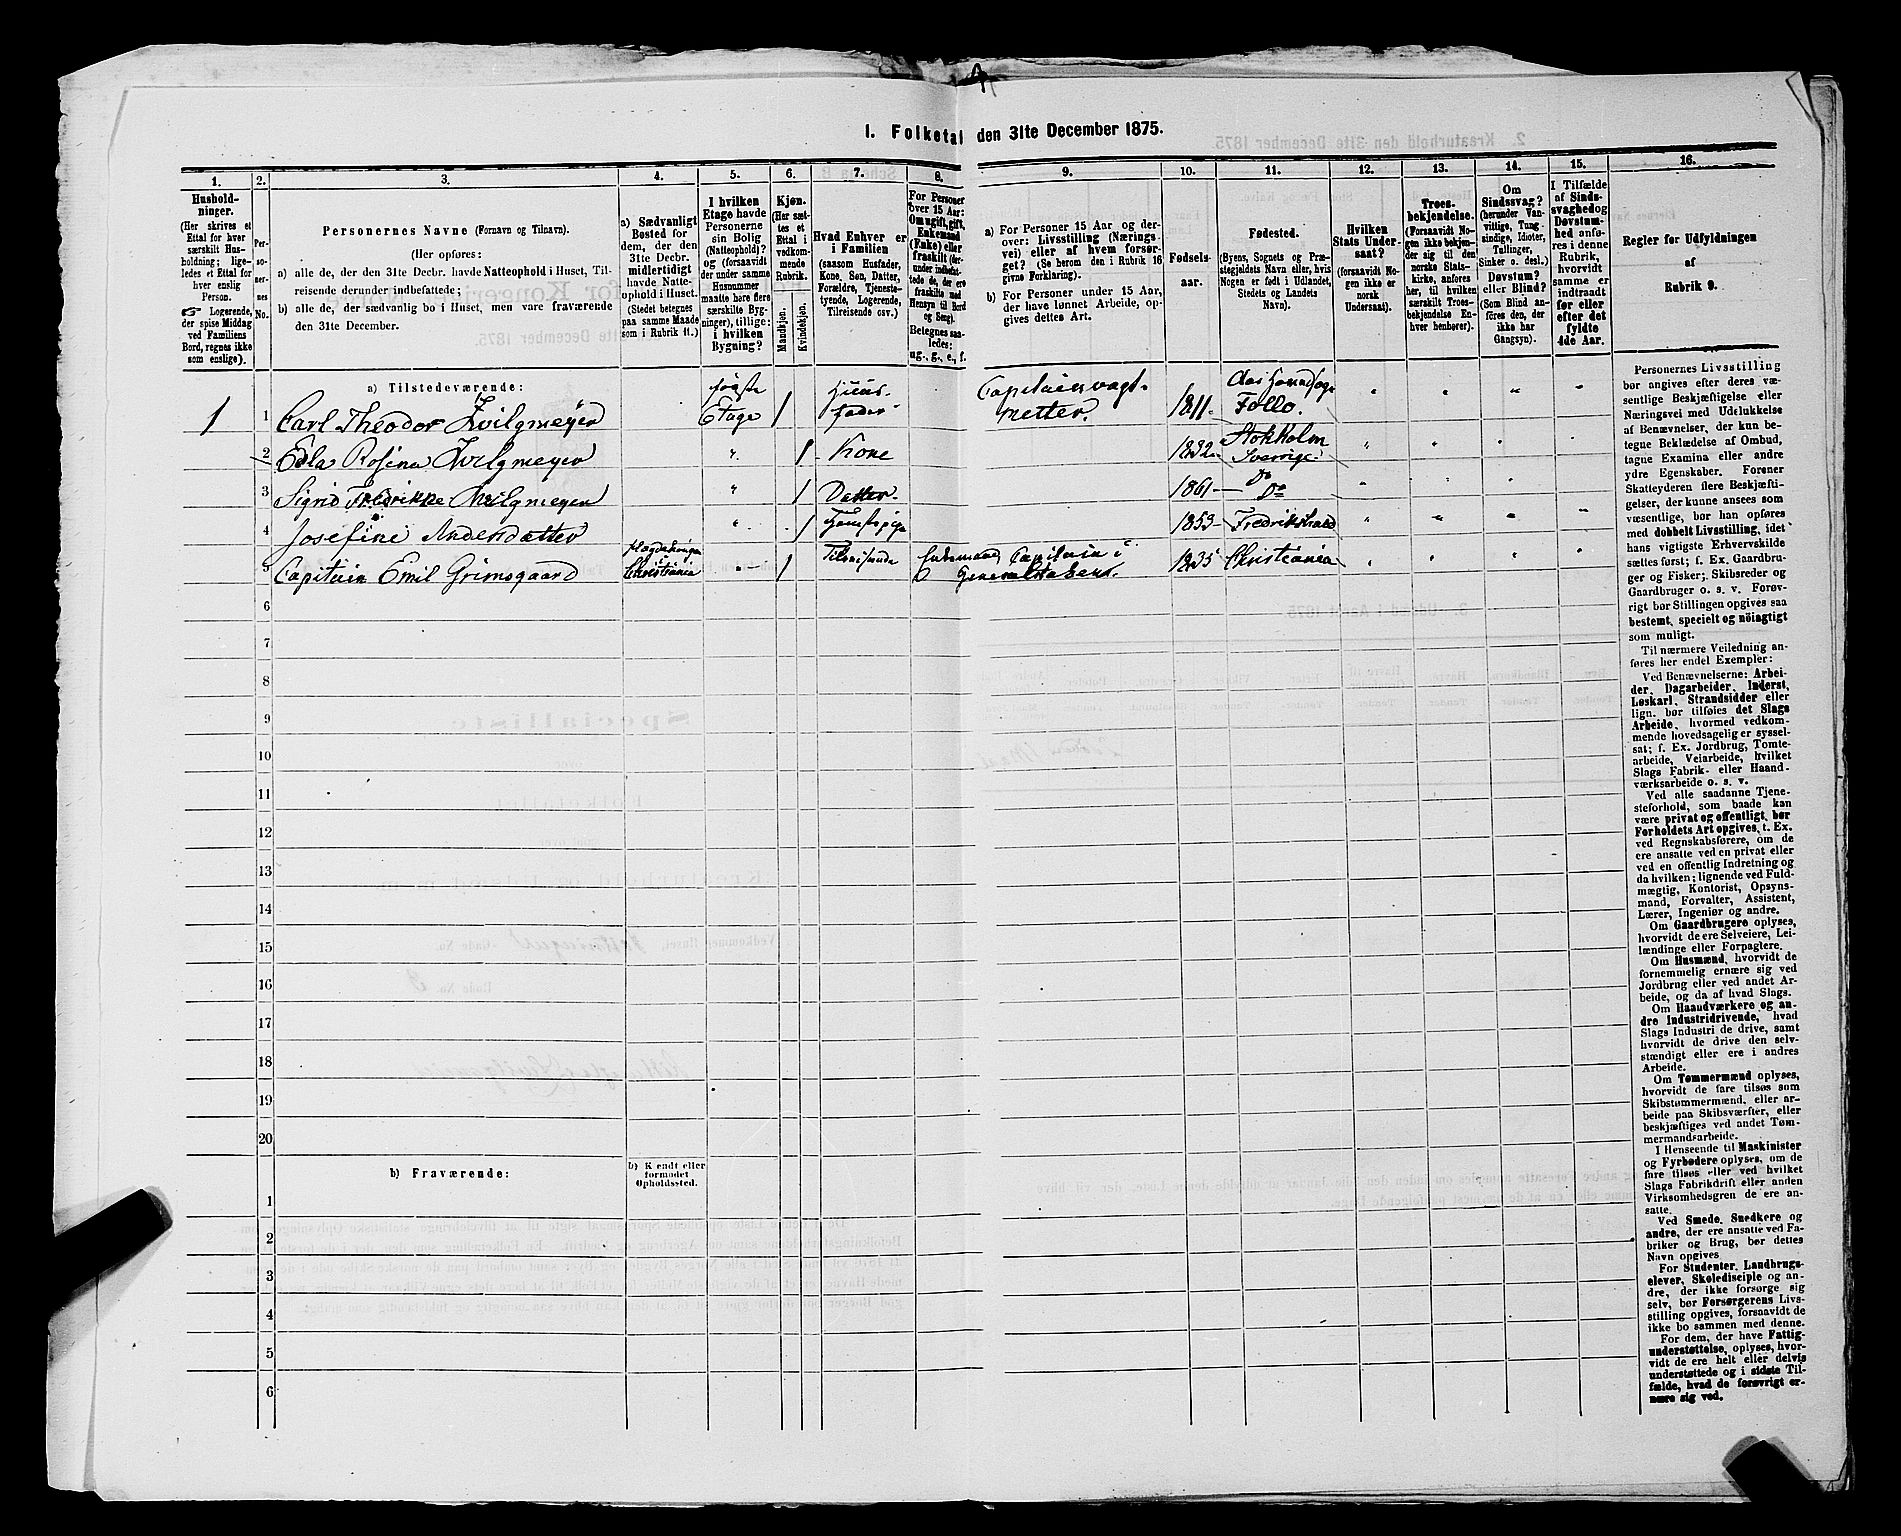 I. Folketal den 31te December 1875.
1. 2. 3. 4. 5. 6. 7. 8. 9. 10. 11. 12. 13. 14. 15. 16.
Hushold-
ninger.
(Her skrives et
Ettal for hver
særskilt Hus-
holdning; lige-
ledes et Ettal for
hver enslig
Person.
☞ Logerende,
der spise Middag
ved Familiens
Bord, regnes ikke
som enslige).
Per-
so-
ner-
nes
No.
Personernes Navne (Fornavn og Tilnavn).
(Her opføres:
a) alle de, der den 31te Decbr. havde Natteophold i Huset, Til-
reisende derunder indbefattede;
b) alle de, der sædvanlig bo i Huset, men vare fraværende
den 31te December.
a) Sædvanligt
Bosted for
dem, der den
31te Decbr.
midlertidigt
havde Natte-
ophold i Huset.
(Stedet betegnes
paa samme Maade
som i Rubrik 11.)
I hvilken
Etage havde
Personerne
sin Bolig
(Natteophold)?
og (forsaavidt
der under samme
Husnummer
maatte høre flere
særskilte Byg-
ninger), tillige:
i hvilken
Bygning?
Kjøn.
(Her sæt-
tes et
Ettal i
vedkom-
mende
Rubrik.
Mandkjøn.
Kvindekjøn.
Hvad Enhver er
i Familien
(saasom Husfader,
Kone, Søn, Datter,
Forældre, Tjeneste-
tyende, Logerende,
Tilreisende osv.)
For Personer
over 15 Aar:
Om ugift, gift,
Enkemand
(Enke) eller
fraskilt (her-
under indbefat-
tede de, der ere
fraskilte med
Hensyn til Bord
og Seng).
Betegnes saa-
ledes:
ug., g., e., f.
a) For Personer 15 Aar og der-
over: Livsstilling (Nærings-
vei) eller af hvem forsør-
get? (Se herom den i Rubrik 16
givne Forklaring).
b) For Personer under 15 Aar,
der have lønnet Arbeide, op-
gives dettes Art.
Fødsels-
aar.
Fødested.
(Byens, Sognets og Præ-
stegjeldets Navn eller, hvis
Nogen er født i Udlandet,
Stedets og Landets
Navn).
Hvilken
Stats Under-
saat?
(forsaavidt No-
gen ikke er
norsk
Undersaat).
Troes-
bekjendelse.
(Forsaavidt No-
gen ikke bekjen-
der sig til den
norske Stats-
kirke, anføres
her, til hvilken
særskilt Troes-
bekjendelse En-
hver henhører).
Om
Sindssvag?
(herunder Van-
vittige, Tung-
sindige, Idioter,
Tullinger,
Sinker o. desl.)
Døvstum?
eller Blind?
(Som Blind an-
føres den, der
ikke har
Gangsyn).
I Tilfælde
af Sinds-
svaghed og
Døvstum-
hed anfø-
res i denne
Rubrik,
hvorvidt
samme er
indtraadt
før eller
efter det
fyldte
4de Aar.
Regler for Udfyldningen
af
Rubrik 9.
a) Tilstedeværende:
1 1 Carl Theodor Zwilgmeyer første Etage 1 Huusfader Capitainvagtmester. 1811 Follo. " " " "
2 Edla Rosina Zwilgmeyer " 1 Kone 1832 Stokholm Sverrige " " " "
3 Sigrid Fredrikke Zwilgmeyer " 1 Datter 1861 Do Do " " " "
4 Josefine Andersdatter " 1 Tjenestepige 1853 Fredrikshald " " " "
5 Capitain Emil Grimsgaard Christiania " 1 Tilreisende Enkemand Capitain i Generalstaben. 1835 Christiania " " " "
6
7
8
9
10
11
12
13
14
15
16
17
18
19
20
b) Fraværende:
b) Kjendt eller
formodet
Opholdssted.
1
2
3
4
5
6
Personernes Livsstilling
bør angives efter deres væ-
sentlige Beskjæftigelse eller
Næringsvei med Udelukkelse
af Benævnelser, der kun be-
tegne Beklædelse af Ombud,
tagne Examina eller andre
ydre Egenskaber. Forener
Skatteyderen flere Beskjæfti-
gelser, der kunne ansees som
væsentlige, bør han opføres
med dobbelt Livsstilling, idet
hans vigtigste Erhvervskilde
sættes først; f. Ex. Gaardbru-
ger og Fisker; Skibsreder og
Gaardbruger o. s. v. Forøv-
rigt bør Stillingen opgives saa
bestemt, specielt og nøiagtigt
som muligt.
Til nærmere Veiledning an-
føres her endel Exempler:
Ved Benævnelserne: Arbei-
der, Dagarbeider, Inderst,
Løskarl, Strandsidder eller
lign. bør tilføies det Slags
Arbeide, hvormed vedkom-
mende hovedsagelig er syssel-
sat; f. Ex. Jordbrug, Tomte-
arbeide, Veiarbeide, hvilket
Slags Fabrik- eller Haand-
værksarbeide o. s. v.
Ved alle saadanne Tjene-
steforhold, som baade kan
være privat og offentligt, bør
Forholdets Art opgives, t. Ex.
ved Regnskabsførere, om de
ere ansatte ved en privat eller
ved en offentlig Indretning og
da hvilken; lignende ved Fuld-
mægtig, Kontorist, Opsyns-
mand, Forvalter, Assistent,
Lærer, Ingeniør og andre.
Om Gaardbrugere oplyses,
hvorvidt de ere Selveiere, Lei-
lændinge eller Forpagtere.
Om Husmænd, hvorvidt de
fornemmelig ernære sig ved
Jordbrug eller ved andet Ar-
beide, og da af hvad Slags.
Om Haandværkere og an-
dre Industridrivende, hvad
Slags Industri de drive, samt
hvorvidt de drive den selv-
stændigt eller ere i andres
Arbeide.
Om Tømmermænd oplyses,
hvorvidt de fare tilsøs som
Skibstømmermænd, eller ar-
beide paa Skibsværfter, eller
beskjæftiges ved andet Tøm-
mermandsarbeide.
I Henseende til Maskinister
og Fyrbødere oplyses, om de
fare tilsøs eller ved hvilket
Slags Fabrikdrift eller anden
Virksomhedsgren de ere an-
satte.
Ved Smede, Snedkere og
andre, der ere ansatte ved Fa-
briker og Brug, bør dettes
Navn opgives
For Studenter, Landbrugs-
elever, Skoledisciple og an-
dre, der ikke forsørge sig
selv, bør Forsørgerens Livs-
stilling opgives, forsaavidt de
ikke bo sammen med denne.
For dem, der have Fattig-
understøttelse, oplyses, hvor-
vidt de ere helt eller delvis
understøttede og i sidste Til-
fælde, hvad de forøvrigt er-
nære sig ved.